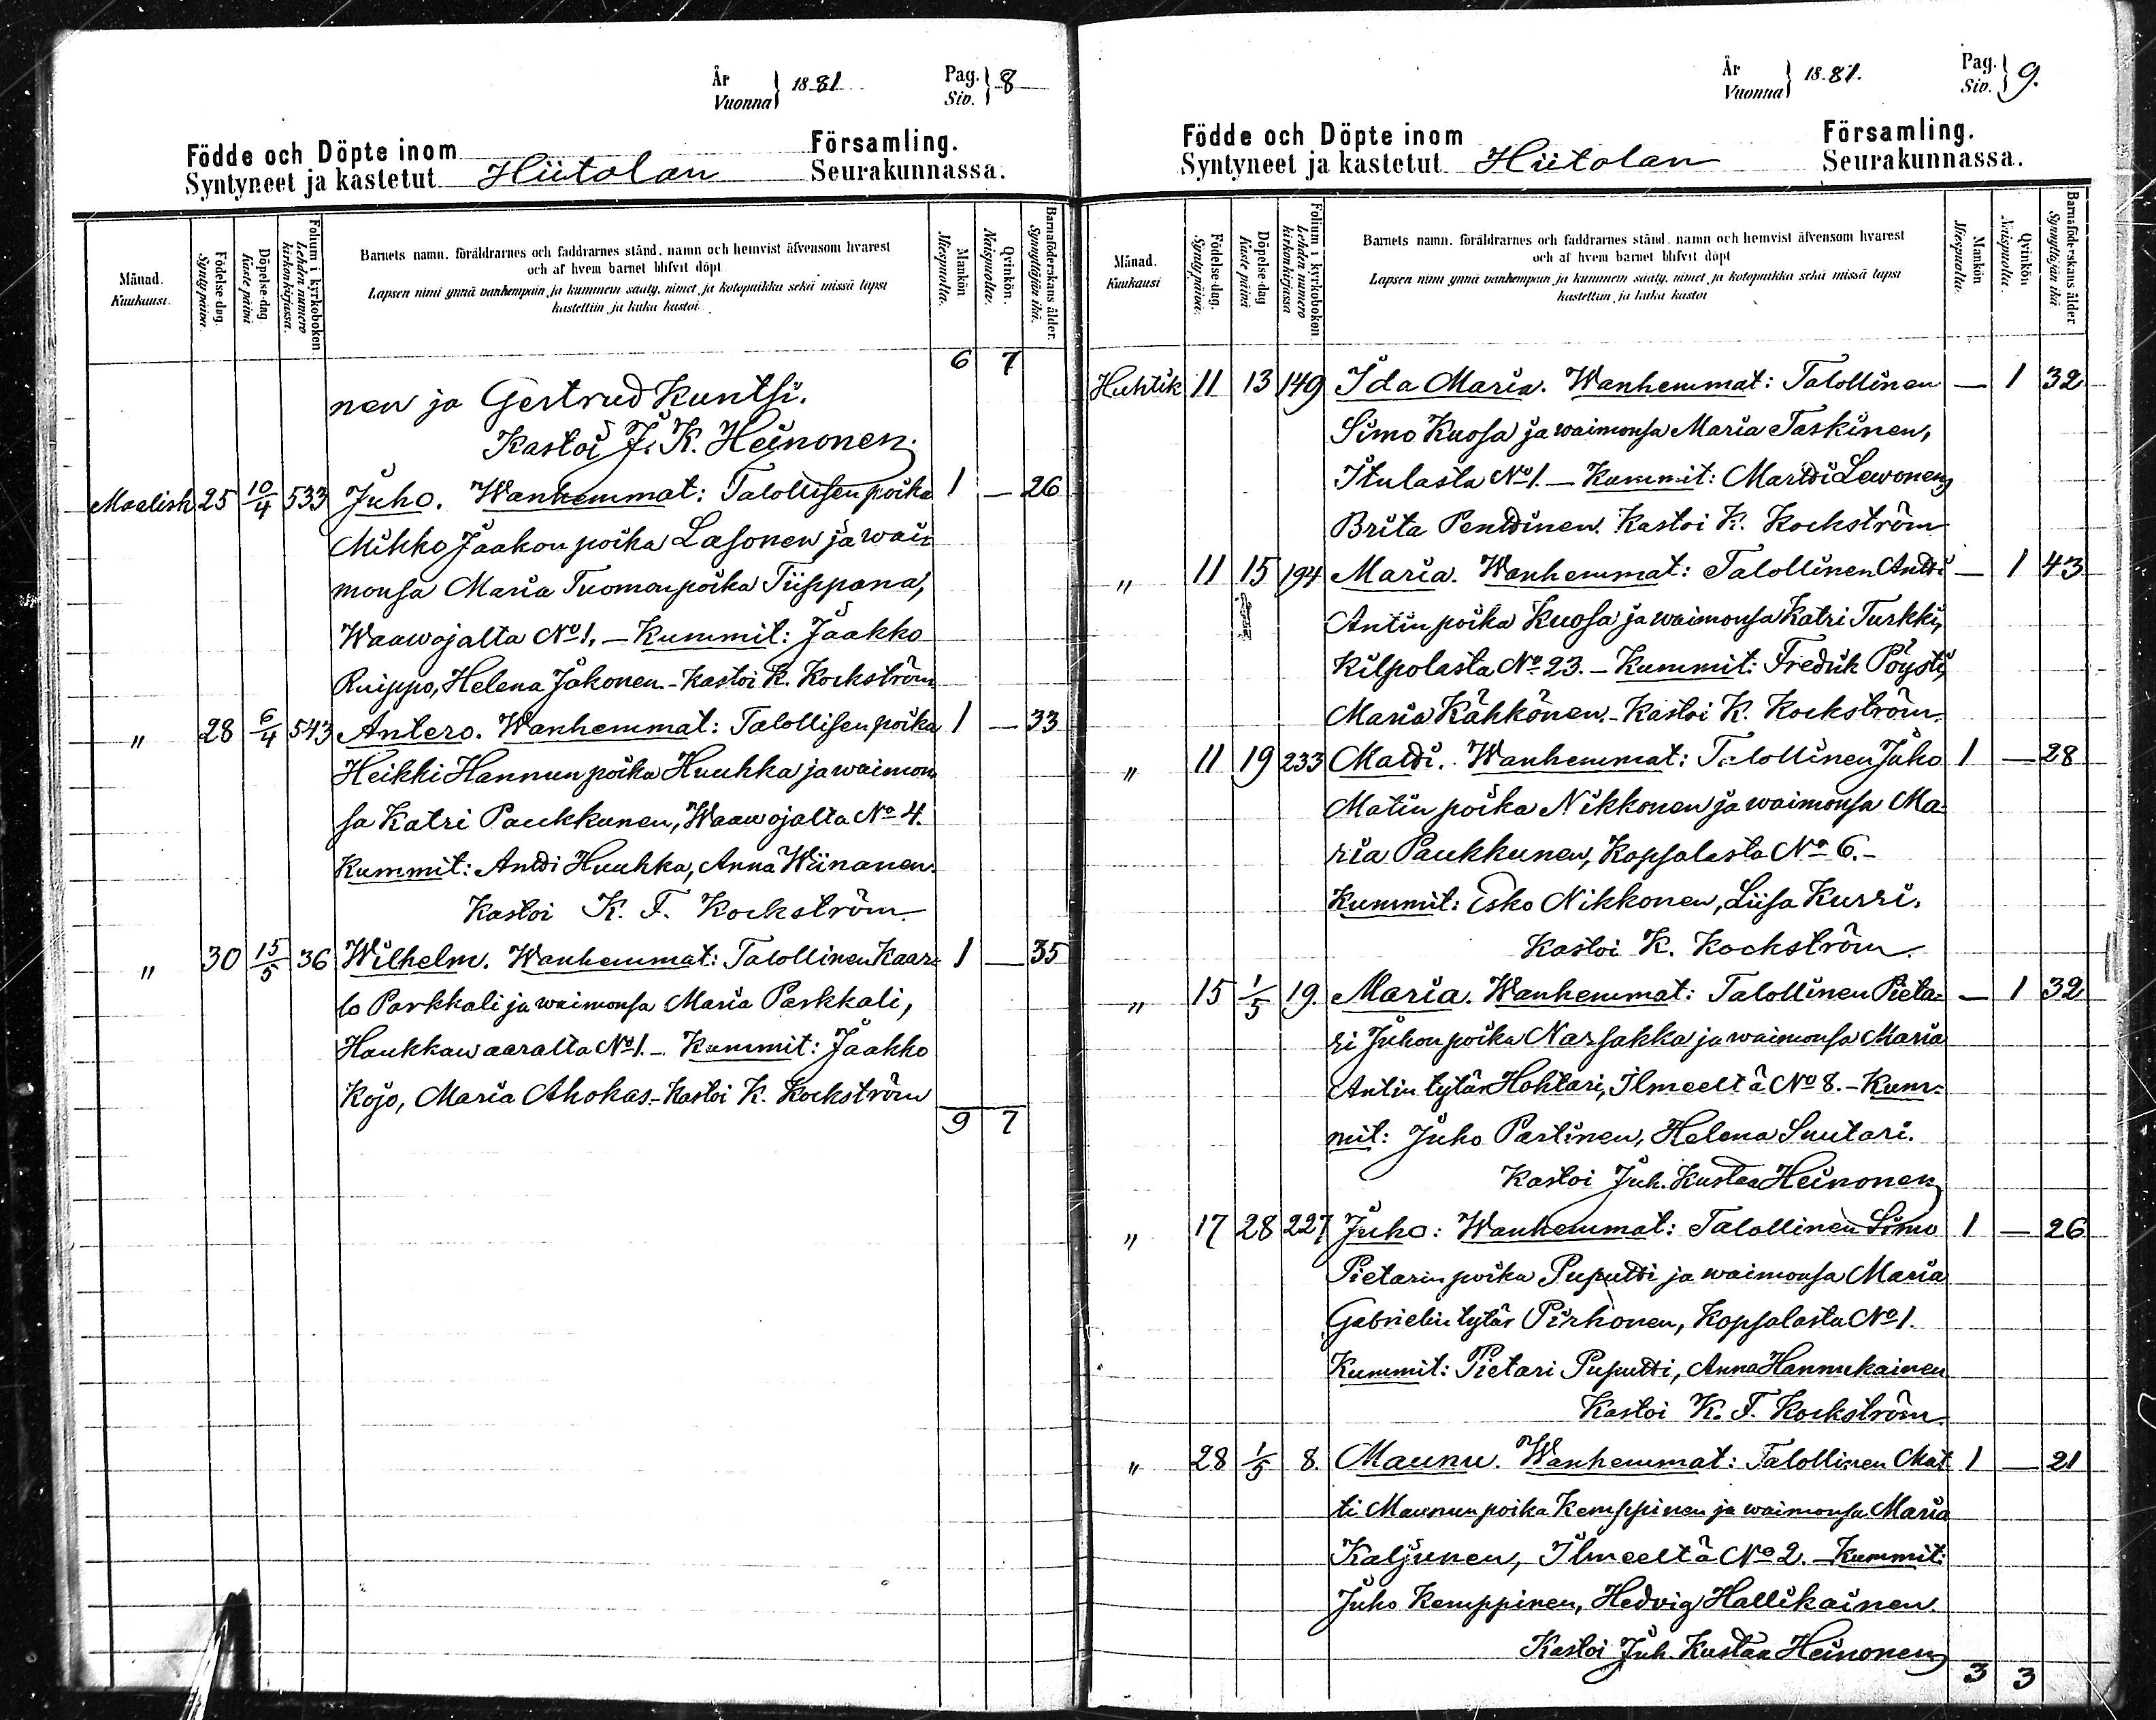 År
Vuonna } 1881 Pag.
Siv. } 8
Födde och Döpte inom Församling.
Syntyneet ja kastetut Hiitolan Seurakunnassa.
Månad.
Kuukausi.
Födelse dag.
Synty päivä.
Döpelse-dag
Kaste päivä
Folium i kyrkoboken.
Lehden numero kirkonkirjassa.
Barnets namn, föräldrarnes och faddrarnes stånd, namn och hemvist äfvensom hvarest
och af hvem barnet blifvit döpt
Lapsen nimi ynnä vanhempain ja kummein sääty, nimet ja kotopaikka sekä missä lapsi
kastettiin ja kuka kastoi.
Mankön
Miespuolta.
Qvinkön.
Naispuolta.
Barnaföderskans ålder.
Synnyttäjän ikä.
6 7
nen ja Gertrud Kuntsi.
Kastoi J. K. Heinonen.
Maalisk 25 10/4 533 Juho. Wanhemmat: Talollisen poika 1 — 26
Mikko Jaakon poika Lasonen ja wai-
monsa Maria Tuomon poika Tiippana,
Waawojalta No 1. — Kummit: Jaakko
Ruippo, Helena Jäkonen. - Kastoi K. Kockström
" 28 6/4 543 Antero. Wanhemmat: Talollisen poika 1 — 33
Heikki Hannun poika Huuhka ja waimon
sa Katri Paukkunen, Waawojalta No 4.
Kummit: Antti Huuhka, Anna Wiinanen.
Kastoi K. F. Kockström
" 30 15/5 36 Wilhelm. Wanhemmat: Talollinen Kaar- 1 — 35
lo Parkkali ja waimonsa Maria Parkkali,
Haukkawaaralta No 1. — Kummit: Jaakko
Kojo, Maria Ahokas. - Kastoi K. Kockström
9 7
År
Vuonna } 1881. Pag.
Siv. } 9.
Födde och Döpte inom Församling.
Syntyneet ja kastetut Hiitolan Seurakunnassa.
Månad.
Kuukausi
Födelse-dag.
Synty päivä.
Döpelse-dag
Kaste päivä
Folium i kyrkoboken.
Lehden numero kirkonkirjassa
Barnets namn, föräldrarnes och faddrarnes stånd, namn och hemvist äfvensom hvarest
och af hvem barnet blifvit döpt
Lapsen nimi ynnä vanhempain ja kummein sääty, nimet ja kotopaikka sekä missä lapsi
kastettiin ja kuka kastoi
Mankön
Miespuolta.
Qvinkön
Naispuolta.
Barnaföderskans ålder
Synnyttäjän ikä.
Huhtik 11 13 149 Ida Maria. Wanhemmat: Talollinen — 1 32
Simo Kuosa ja waimonsa Maria Taskinen,
Itulasta No 1. — Kummit: Martti Lewonen,
Brita Penttinen. Kastoi K. Kockström
" 11 15 194 Maria. Wanhemmat: Talollinen Antti — 1 43
Antin poika Kuosa ja waimonsa Katri Turkki,
Kilpolasta No 23. — Kummit: Fredrik Pöysti,
Maria Kähkönen. - Kastoi K. Kockström.
" 11 19 233 Matti. Wanhemmat: Talollinen Juho 1 — 28
Matin poika Nikkonen ja waimonsa Ma-
ria Paukkunen, Kopsalasta No 6. -
Kummit: Esko Nikkonen, Liisa Kurri.
Kastoi K. Kockström.
" 15 1/5 19. Maria. Wanhemmat: Talollinen Pieta- — 1 32
ri Juhon poika Narsakka ja waimonsa Maria
Antin tytär Hohtari, Ilmeeltä No 8. - Kum-
mit: Juho Partinen, Helena Suutari.
Kastoi Juh. Kustaa Heinonen
" 17 28 227 Juho: Wanhemmat: Talollinen Simo 1 — 26
Pietarin poika Puputti ja waimonsa Maria
Gabrielin tytär Pirhonen, Kopsalasta No 1.
Kummit: Pietari Puputti, Anna Hannukainen
Kastoi K. F. Kockström.
" 28 1/5 8. Maunu. Wanhemmat: Talollinen Mat 1 — 21
ti Maunun poika Kemppinen ja waimonsa Maria
Kaljunen, Ilmeeltä No 2. — Kummit:
Juho Kemppinen, Hedvig Hallikainen.
Kastoi Juh. Kustaa Heinonen
3 3